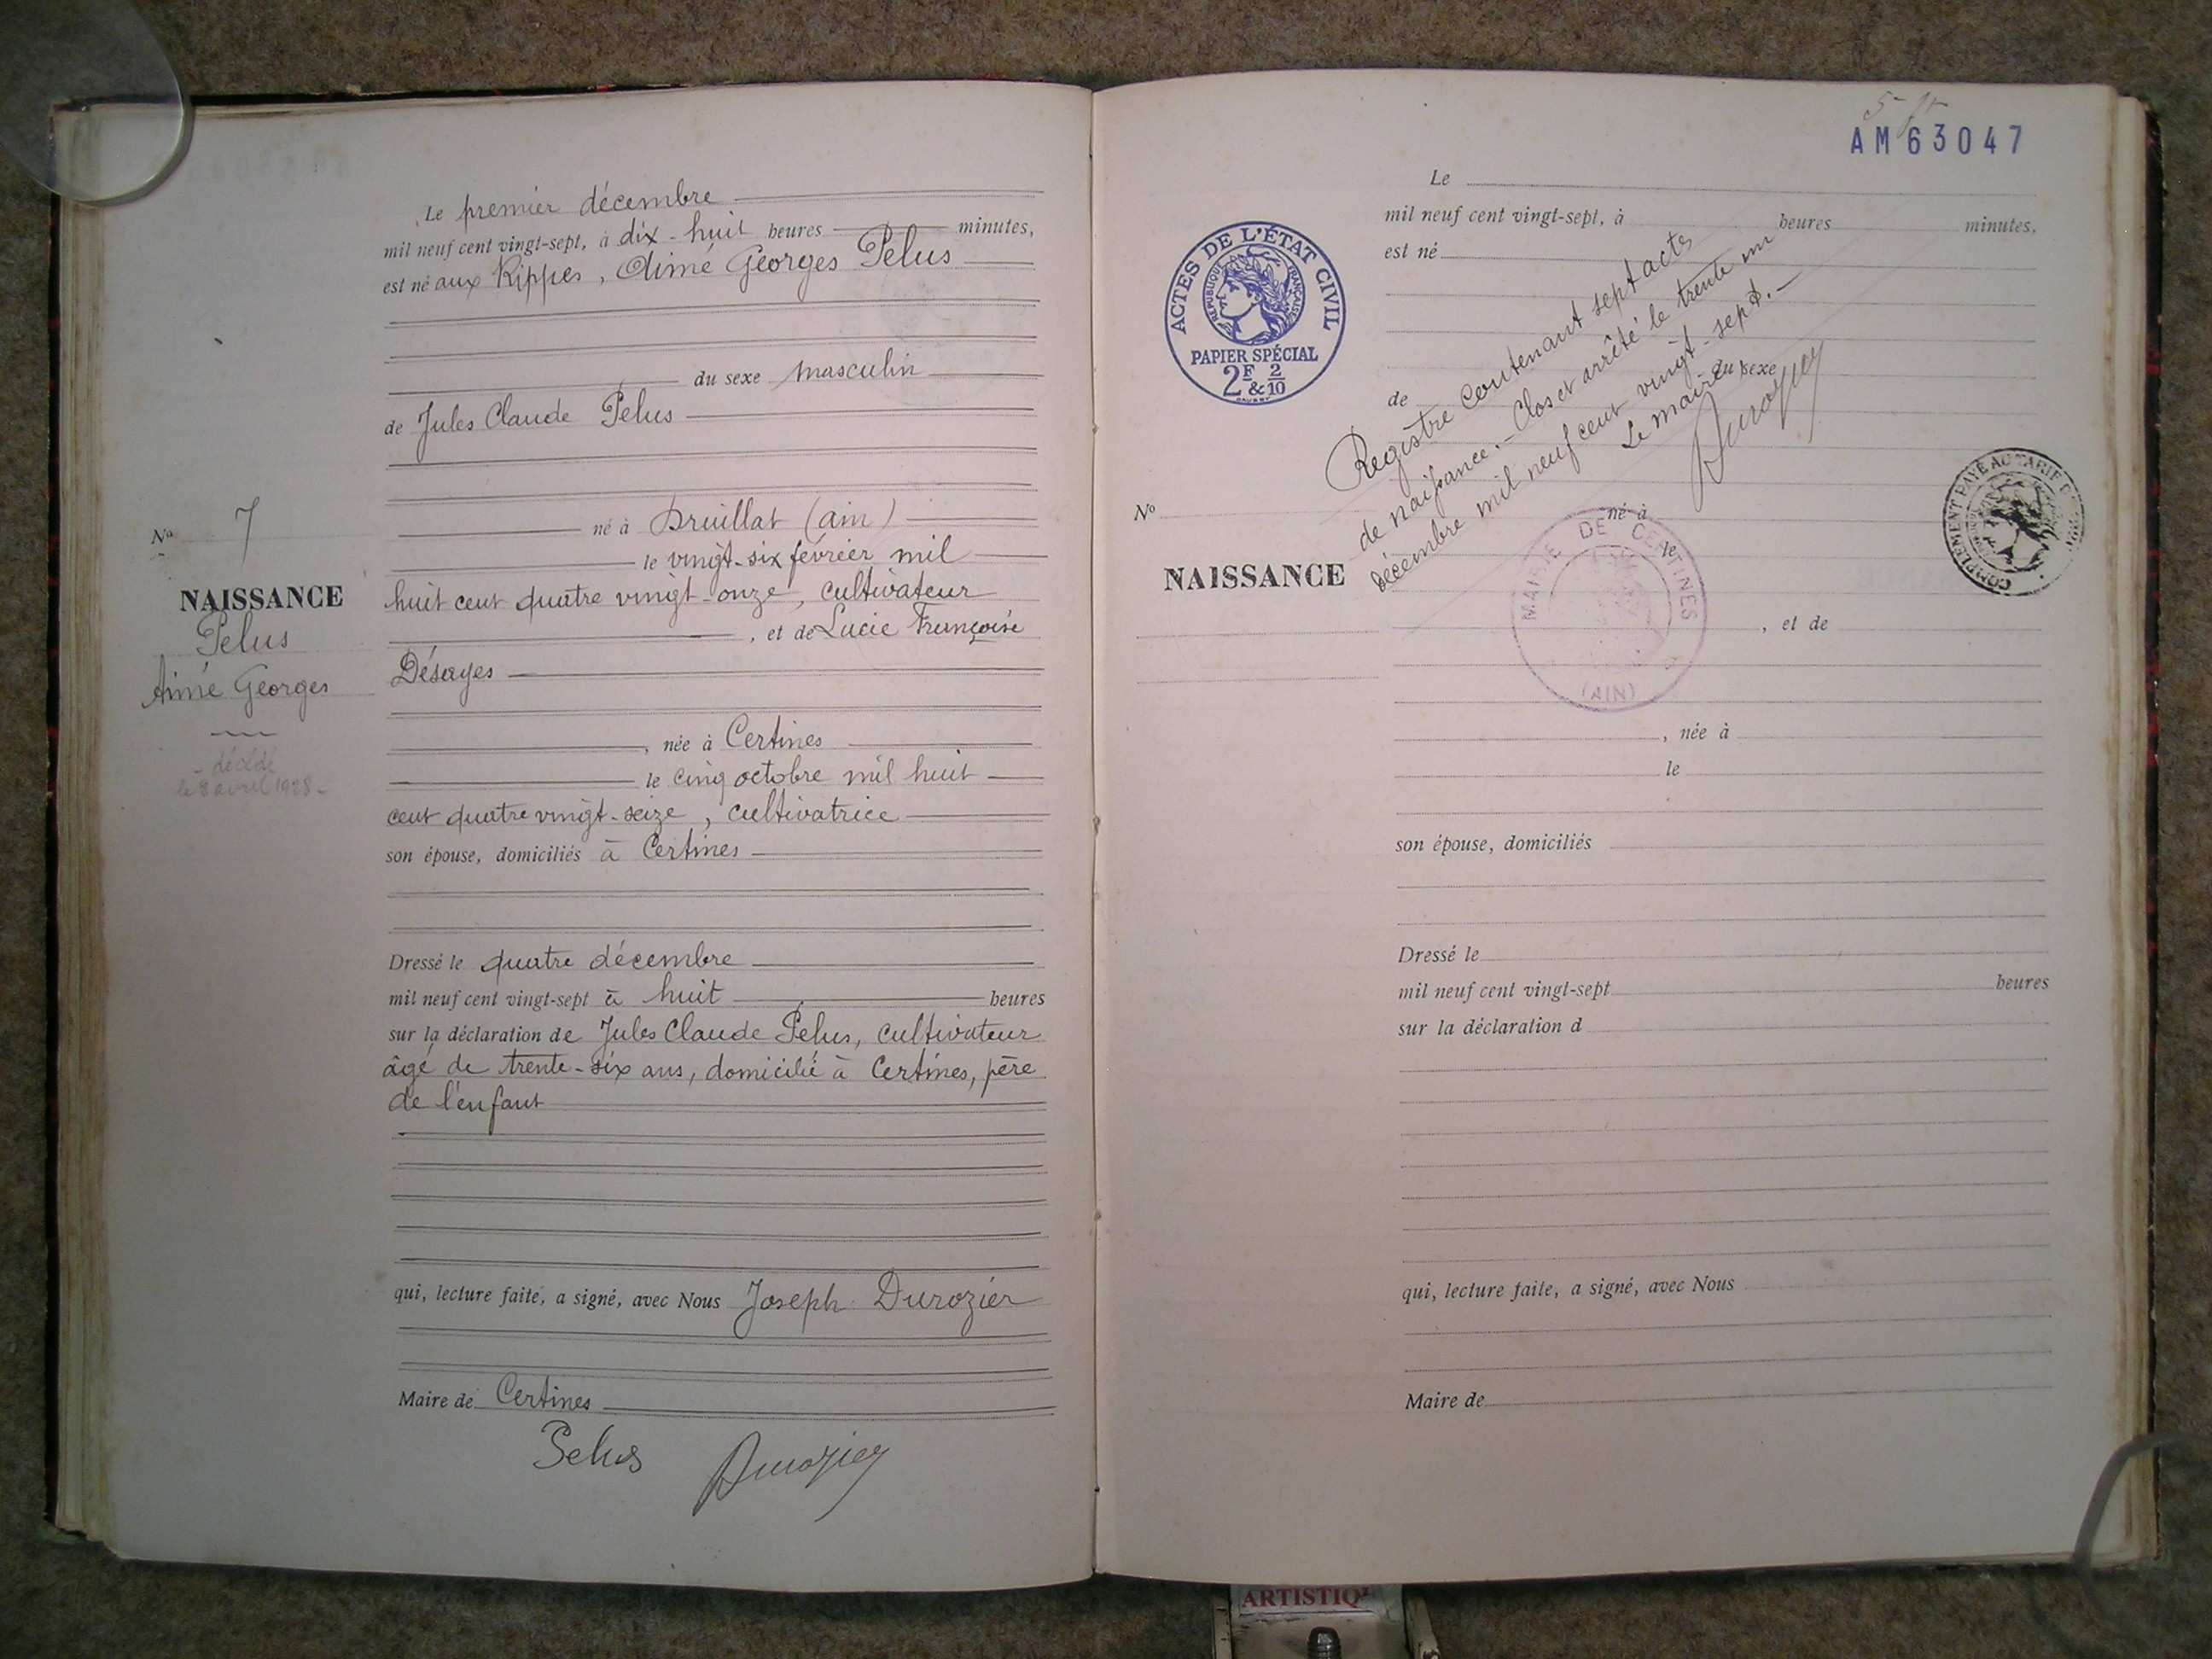 Le premier décembre
mil neuf cent vingt-sept, à dix-huit heures minutes,
est né aux Rippes, Aimé Georges Pelus
du sexe masculin
de Jules Claude Pelus
né à Druillat (ain)
le vingt-six février mil
huit cent quatre vingt-onze, cultivateur
, et de Lucie Françoise
Désayes
, née à Certines
le cinq octobre mil huit
cent quatre vingt-seize, cultivatrice
son épouse, domiciliés à Certines
Dressé le quatre décembre
mil neuf cent vingt-sept à huit heures
sur la déclaration de Jules Claude Pelus, cultivateur
âgé de trente-six ans, domicilié à Certines, père
de l'enfant
qui, lecture faite, a signé, avec Nous Joseph Durozier
Maire de Certines
Pelus Durozier
No 7
NAISSANCE
Pelus
Aimé Georges
- décédé
le 8 avril 1928 -
5 fr
AM63047
Le
mil neuf cent vingt-sept, à heures minutes,
est né
du sexe
de
né à
le
, et de
, née à
le
son épouse, domiciliés
Dressé le
mil neuf cent vingt-sept heures
sur la déclaration d
qui, lecture faite, a signé, avec Nous
Maire de
No
NAISSANCE
Registre contenant sept actes
de naissance. - Clos et arrêté le trente un
décembre mil neuf cent vingt-sept. -
Le maire,
Durozier
ACTES DE L'ÉTAT CIVIL
RÉPUBLIQUE FRANÇAISE
PAPIER SPÉCIAL
2F & 2/10
MAIRIE DE CERTINES
(AIN)
COMPLÉMENT PAYÉ AU TARIF
ARTISTIQ